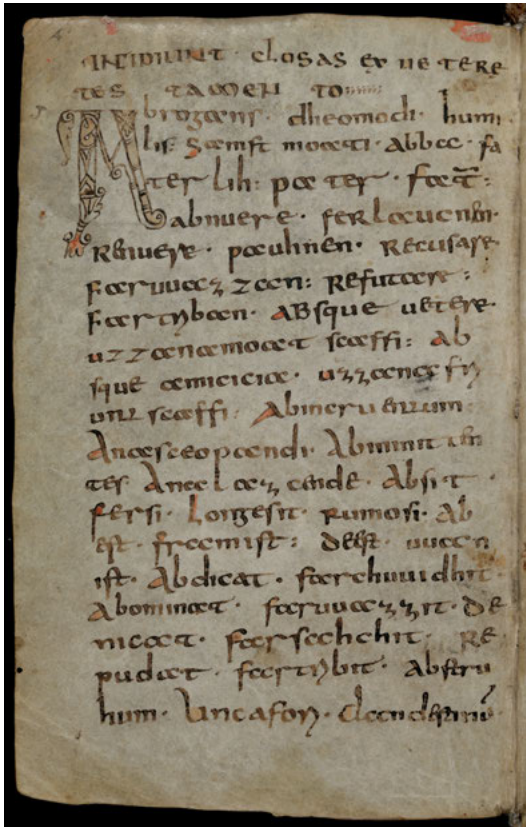 INCIPIUNT · CLOSAS EX UETERE
TES TAMEN TO
Abrogans · dheomodi · humi
lis · samft moati · abba · fa
ter lih · pater · fat̄ ·
abnuere · ferlaucnen ·
renuere · pauhnen · recusare
faruuazzan · refutare ·
fartriban · absque uetere ·
uzzanamoat scaffi · ab
sque amicicia · uzzana fri
unt scaffi · abincruentum ·
anasceopandi · abminit
tes anelazende · absit ·
fersi · longesit · rumofi · ab
est · fram ist · deest · uuan
ist · abdicat · farchuuidhit ·
abominat · faruuazzit · de
nicat · farsahchit · re
pudiat · fartribit · abstru
sum ·